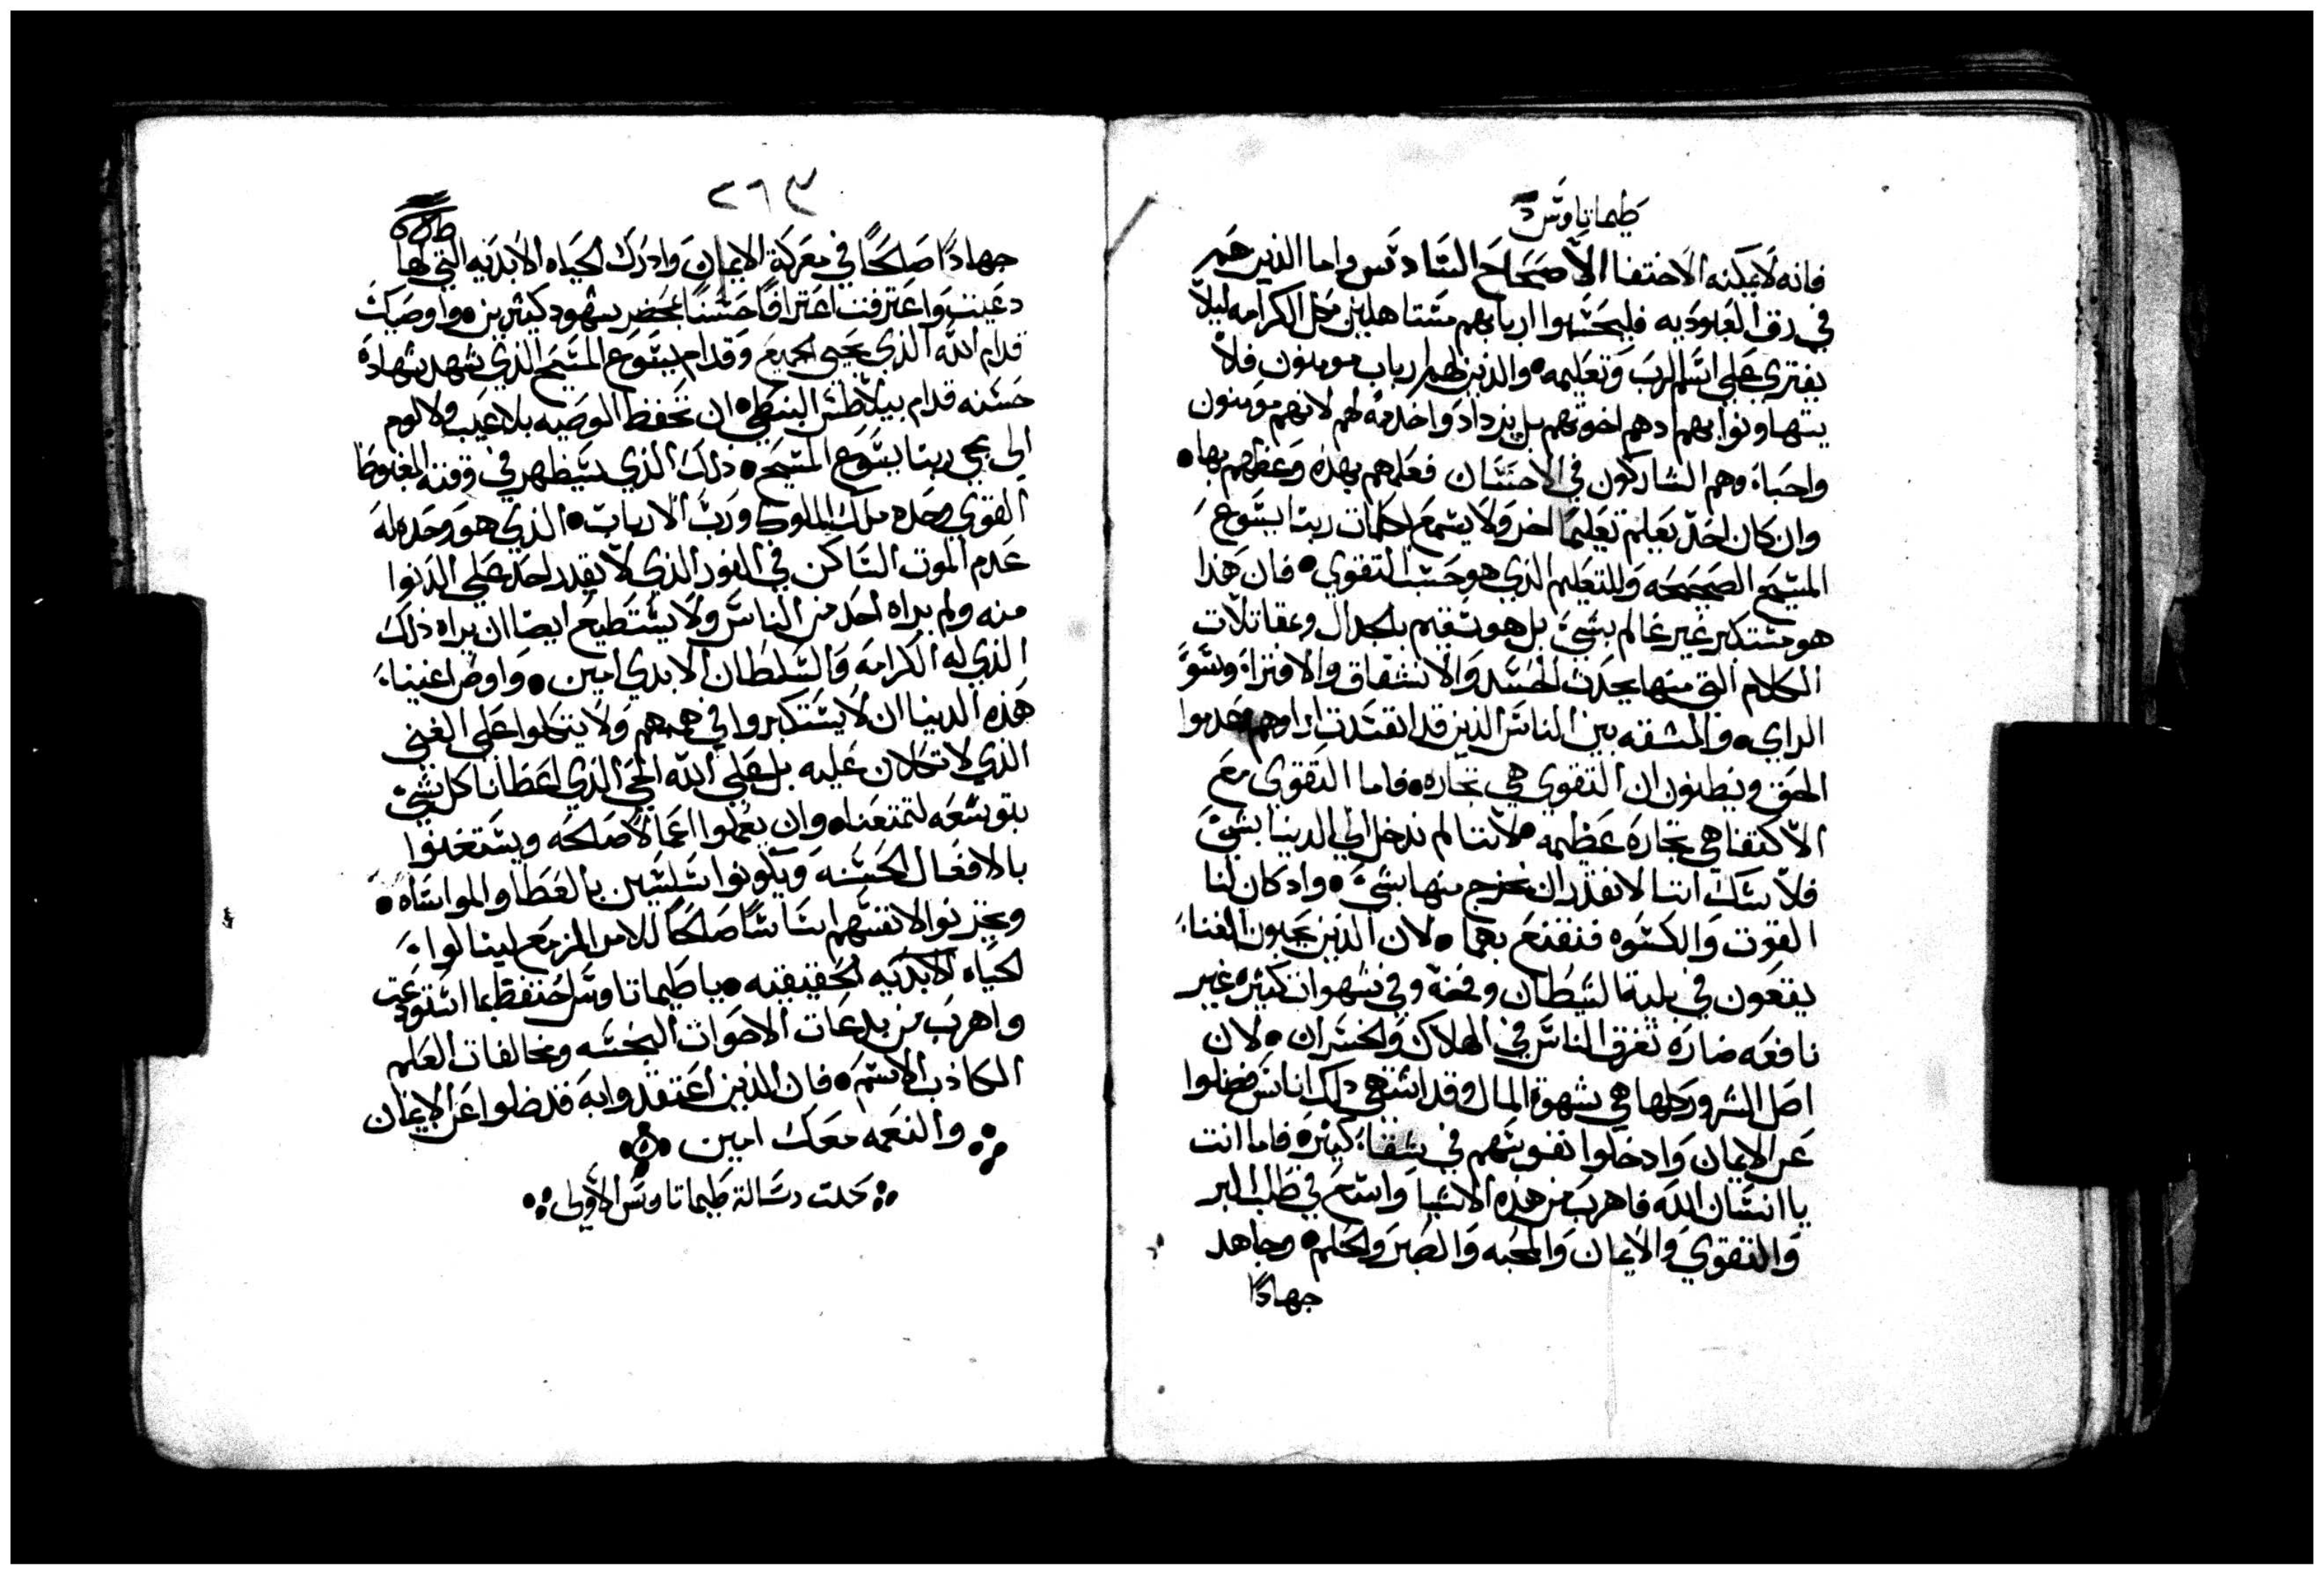 طيماتاوس
فانه لا يمكنه الاختفا الاصحاح السادس واما الذين هم
في رق العبوديه فليحسبوا اربابهم مستاهلين كل الكرامه ليلا
يفترى على اسم الرب وتعليمه والذين لهم ارباب مومنون فلا
يتهاونوا بهم اذهم اخوتهم بل يزدادوا خدمة لهم لانهم مومنون
واحباء وهم المشاركون في الاحسان فعلمهم بهذه وعظهم بها
وان كان احد يعلم تعليما اخر ولا يسمع لكلمات ربنا يسوع
المسيح الصحيحه وللتعليم الذي هو حسب التقوي فان هذا
هو مستكبر غير عالم بشيء بل هو سقيم بالجدال ومقاتلات
الكلام التي منها يحدث الحسد والانشقاق والافتراء وسو
الراي والمشقه بين الناس الذين قد انفسدت اراوهم وعدموا
الحق ويظنون ان التقوي هي تجاره فاما التقوي مع
الاكتفا هي تجارة عظيمه لاننا لم ندخل الي الدنيا بشيء
فلا شك اننا لا نقدر ان نخرج منها بشيء واذ كان لنا
القوت والكسوه فنقنع بهما لان الذين يحبون الغناء
يقعون في بلية الشيطان وفخه وفي شهوات كثيره غير
نافعه ضارة تغرق الناس في الهلاك والخسران لان
اصل الشرور كلها هي شهوة المال وقد اشتهي ذلك اناس فضلوا
عن الايمان وادخلوا نفوسهم في شقاء كثيره فاما انت
يا انسان الله فاهرب من هذه الاشيا واسع في طلب البر
والتقوي والايمان والمحبه والصبر والحلم وجاهد
جهادا
٢٦٣
جهادا صالحا في معركة الايمان وادرك الحياه الابديه التي لها
دعيت واعترفت اعترافا حسنا بمحضر شهود كثيرين واوصيك
قدام الله الذي يحيي الجميع وقدام يسوع المسيح الذي شهد شهادة
حسنه قدام بيلاطس البنطي ان تحفظ الوصيه بلا عيب ولا لوم
الي مجي ربنا يسوع المسيح ذلك الذي سيظهر في وقته المغبوط
القوي وحده ملك الملوك ورب الارباب الذي هو وحده له
عدم الموت الساكن في النور الذي لا يقدر احد علي الدنوا
منه ولم يراه احد من الناس ولا يستطيع ايضا ان يراه ذلك
الذي له الكرامه والسلطان الابدي امين واوص اغنياء
هذه الدنيا ان لا يستكبروا في هممهم ولا يتكلوا علي الغني
الذي لا تكلان عليه بل علي الله الحي الذي اعطانا كل شيء
بتوسعه لتمتعنا وان يعملوا اعمالا صالحه ويستغنوا
بالافعال الحسنه ويكونوا سلسين بالعطا والمواساه
ويخزنوا لانفسهم اساسا صالحا للامر المزمع لينالوا
الحياه الابديه الحقيقيه يا طيماتاوس احتفظ بما استودعت
واهرب من بدعات الاصوات النجسه ومخالفات العلم
الكاذب الاسم فان الذين اعتقدوا به قد ضلوا عن الايمان
والنعمه معك امين
كملت رسالة طيماتاوس الاولي